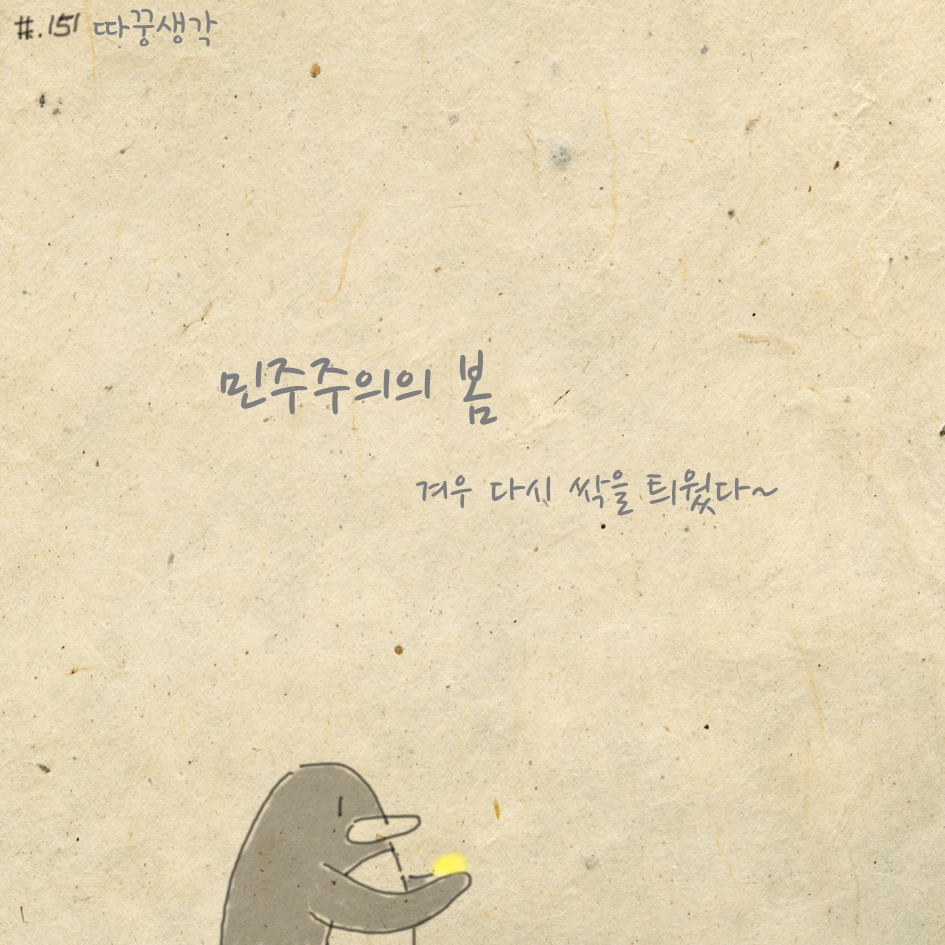 #.151 따꿍생각
민주주의의 봄
겨우 다시 싹을 틔웠다~